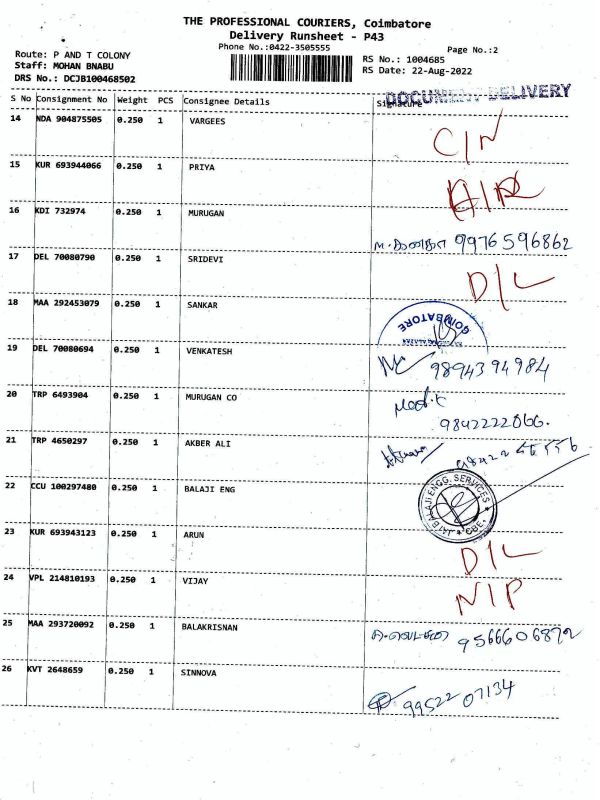 THE PROFESSIONAL COURIERS, Coimbatore
Delivery Runsheet - P43
Phone No.:0422-3505555
Page No.:2
Route: P AND T COLONY
Staff: MOHAN BNABU
DRS No.: DCJB100468502
RS No.: 1004685
RS Date: 22-Aug-2022
DOCUMENT DELIVERY
S No Consignment No Weight PCS Consignee Details Signature
14 NDA 904875505 0.250 1 VARGEES C/N
15 KUR 693944066 0.250 1 PRIYA
16 KDI 732974 0.250 1 MURUGAN 9976596862
17 DEL 70080790 0.250 1 SRIDEVI D/L
18 MAA 292453079 0.250 1 SANKAR COIMBATORE
19 DEL 70080694 0.250 1 VENKATESH 9894394984
20 TRP 6493904 0.250 1 MURUGAN CO
9842222066.
21 TRP 4650297 0.250 1 AKBER ALI
22 CCU 100297480 0.250 1 BALAJI ENG JAI BALAJI ENGG. SERVICES CBE
23 KUR 693943123 0.250 1 ARUN D/L
24 VPL 214810193 0.250 1 VIJAY N/P
25 MAA 293720092 0.250 1 BALAKRISNAN 9566606872
26 KVT 2648659 0.250 1 SINNOVA 9952207134